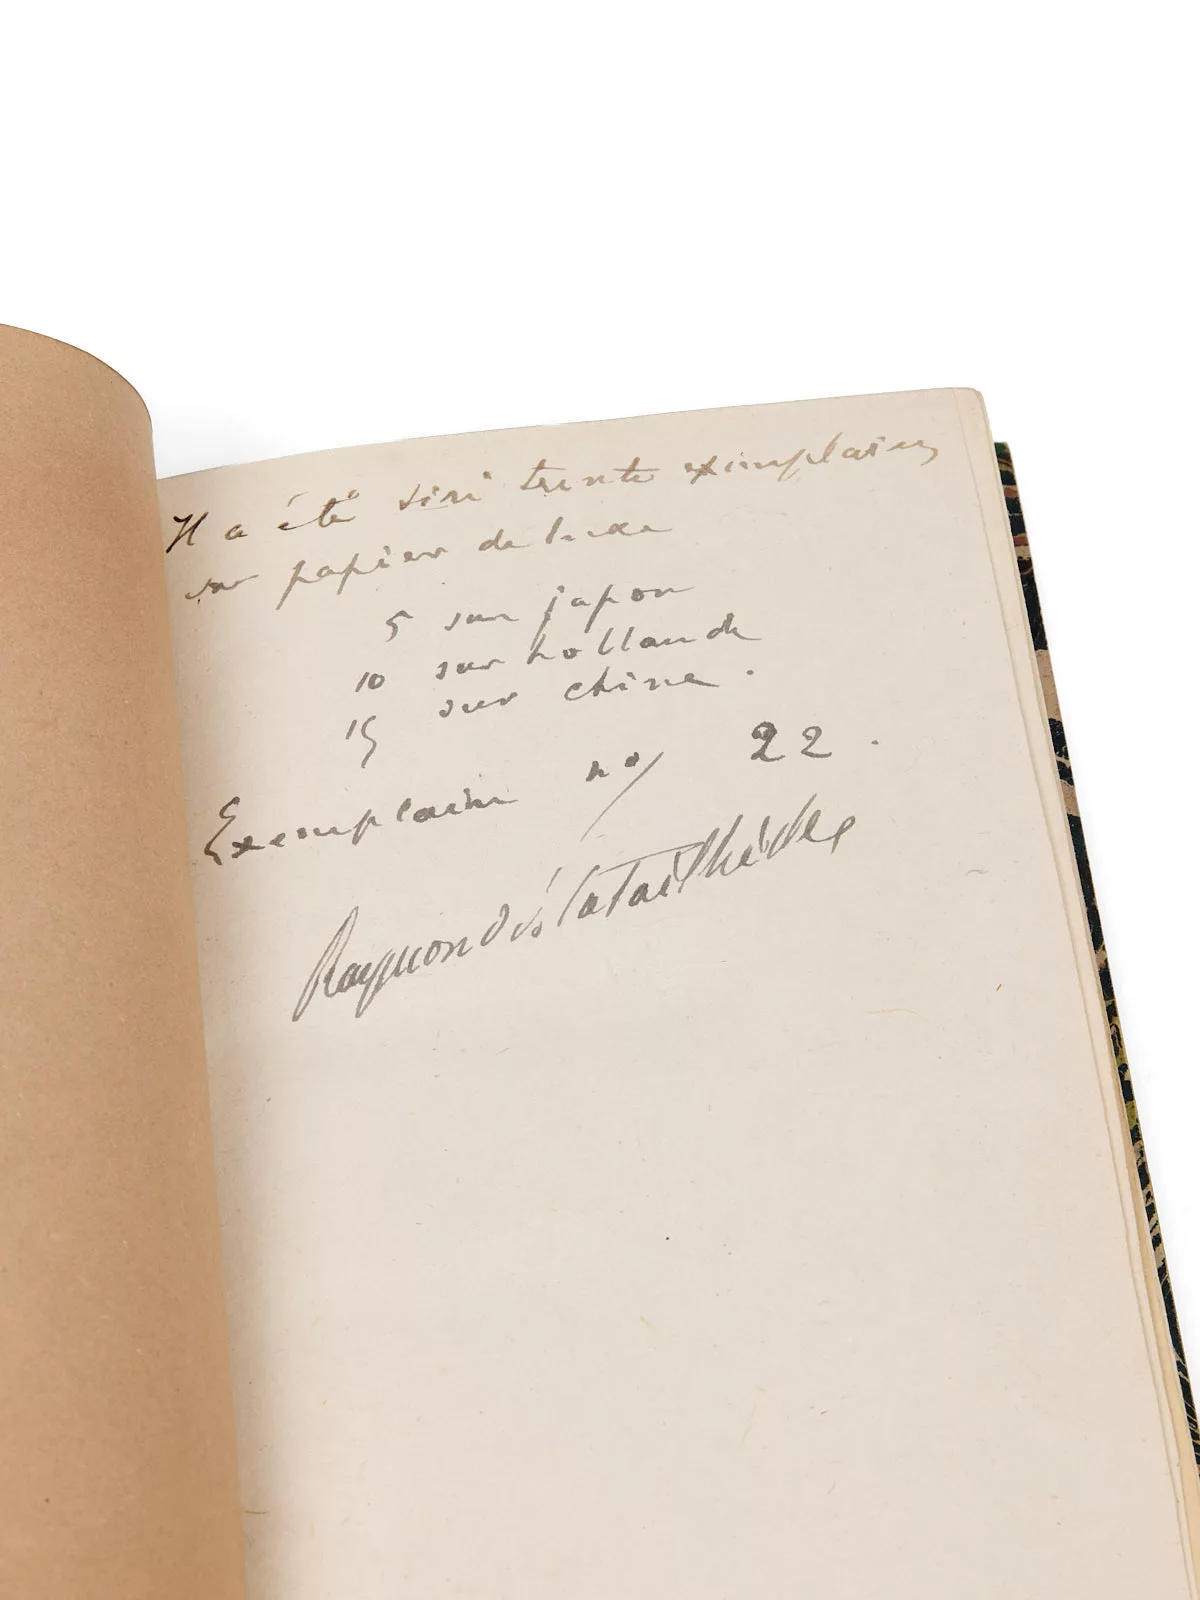 Il a été tiré trente exemplaires
sur papier de luxe
5 sur japon
10 sur hollande
15 sur chine.
Exemplaire no/ 22.
Raymond de la Tailhède